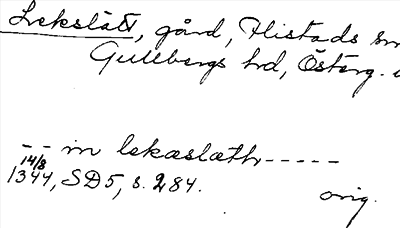 Lekslätt, gård, Flistads sn
Gullbergs hd, Österg.
-- in lekaslæth-----
14/8
1344, SD5, s. 284.
orig.